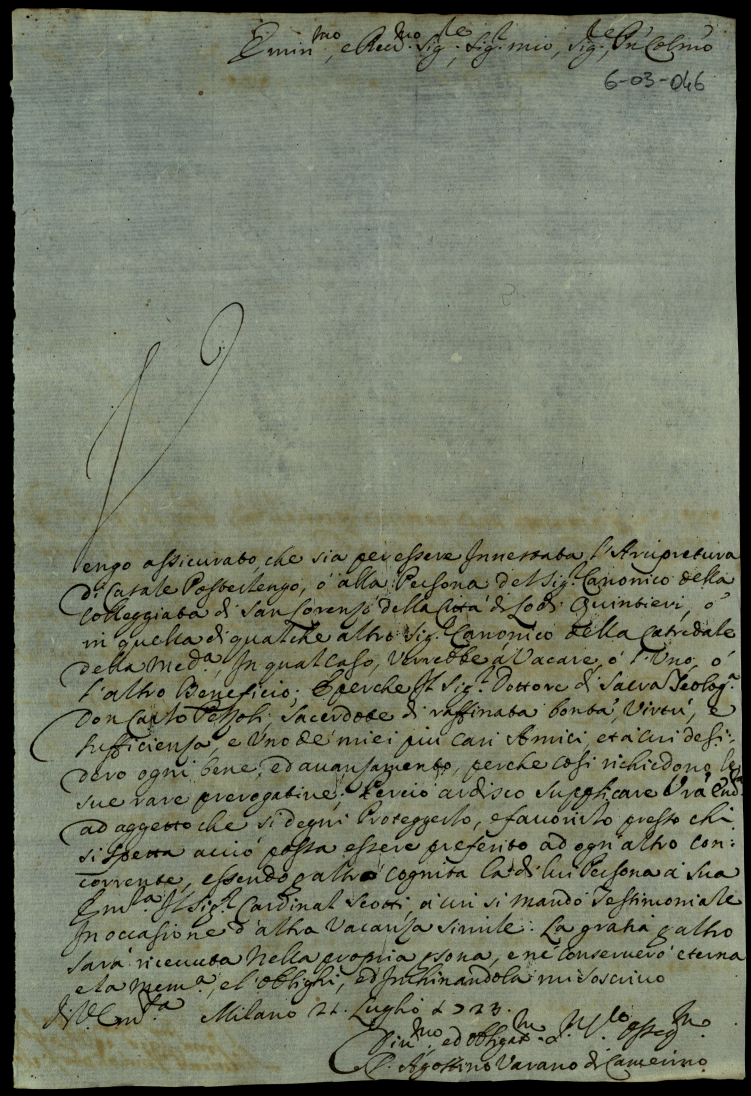 Emin.mo, e Rev.mo Sig.re, Sig.r mio, Sig.re, P'n Colmo
6-03-046
Vengo assicurato, che sia per essere Innestata l'Arcipretura
di Casale Posterlengo, ò alla Persona del Sig.r Canonico della
Colleggiata di San Lorenzo della Città di Lodi Quintieri, ò
in quella di qualche altro Sig.r Canonico della Catredale
della Med.a, In qual Caso, Verrebbe à Vacare, ò l'Uno, ò
l'altro Beneficio; E perche Il Sig.r Dottore di Sacra Teolog.a
Don Carlo, Sacerdote di raffinata bontà, Virtù, e
sufficienza, e Uno de miei più Cari Amici, età Cui desi:
dero ogni bene, ed avanzamento, perche Così richiedono le
sue rare prerogative; Perciò ardisco supplicare V'ra Em.a
ad aggetto che si degni Proteggerlo, e favorirlo presso chi
si spetta acciò possa essere preferito ad ogn'altro con:
corrente, essendo p altro cognita la di lui Persona à sua
Em.za Il Sig.r Cardinal Scotti à cui si mandò Testimoniale
In occasione d'altra Vacanza simile: La gratia p altro
sarà ricevuta Nella propria p'sona, e ne conserverò eterna
e la mem.a, e l'oblighi, ed Inchinandola mi soscrivo
di V. Em.za Milano 21 Luglio 1723.
Div.mo, ed obligat.mo osseq.mo
P. Agostino Varano di Camerino